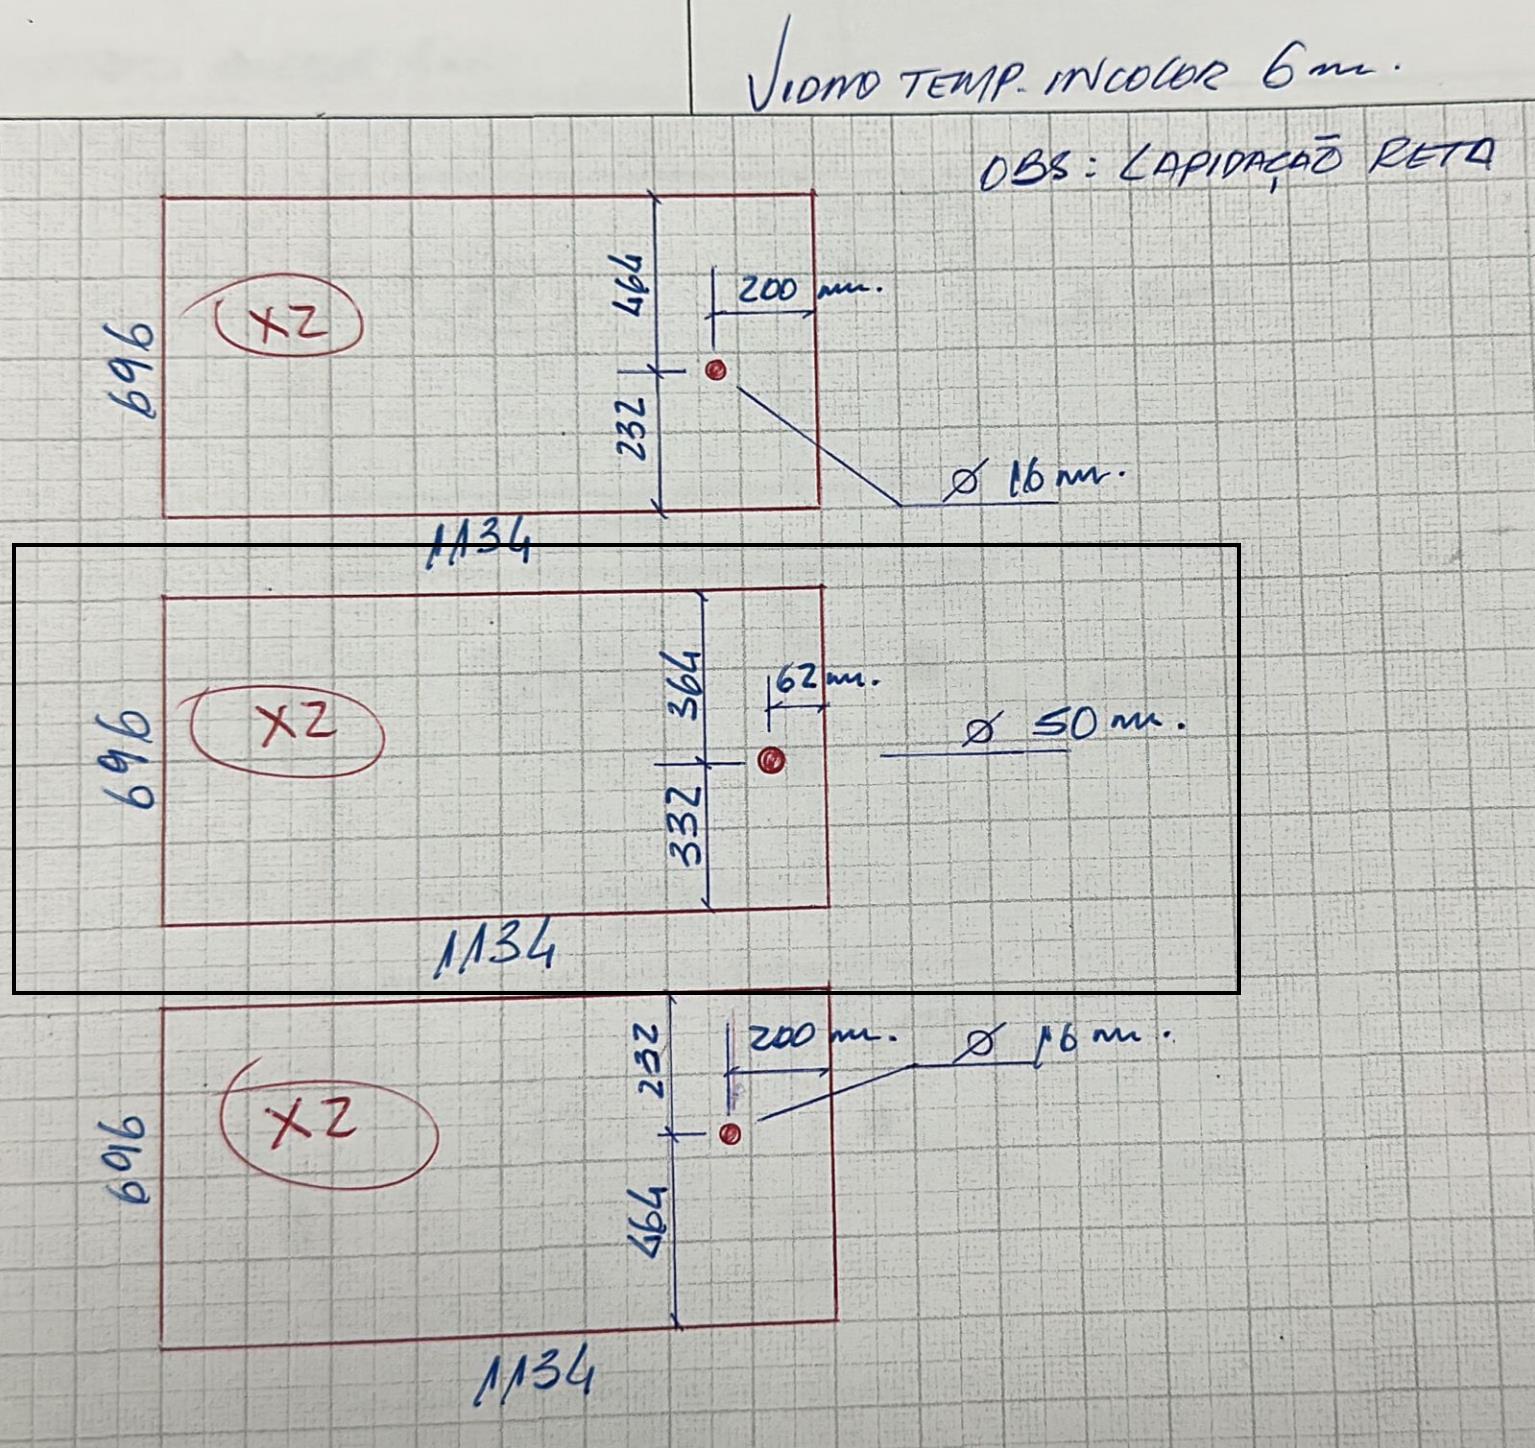 VIDRO TEMP. INCOLOR 6 mm.
OBS: LAPIDAÇÃO RETA
X2
696
464
232
200 mm.
Ø 16 mm.
1134
X2
696
364
332
62 mm.
Ø 50 mm.
1134
X2
696
232
464
200 mm.
Ø 16 mm.
1134